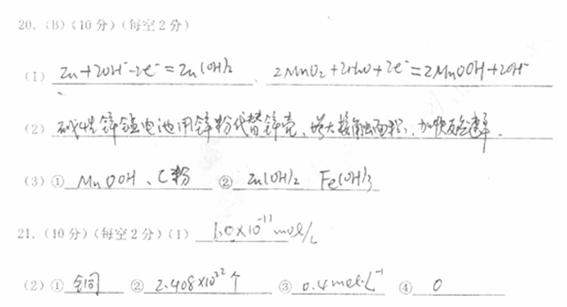 20. (B) (10 分) (每空 2 分)
(1) Zn+2OH⁻-2e⁻=Zn(OH)₂ 、 2MnO₂+2H₂O+2e⁻=2MnOOH+2OH⁻
(2) 碱性锌锰电池用锌粉代替锌壳、增大接触面积、加快反应速率.
(3) ① MnOOH、C粉 ② Zn(OH)₂ Fe(OH)₃
21. (10 分) (每空 2 分) (1) 1.0×10⁻¹¹mol/L
(2) ① 铜 ② 2.408×10²²个 ③ 0.4mol·L⁻¹ ④ 0